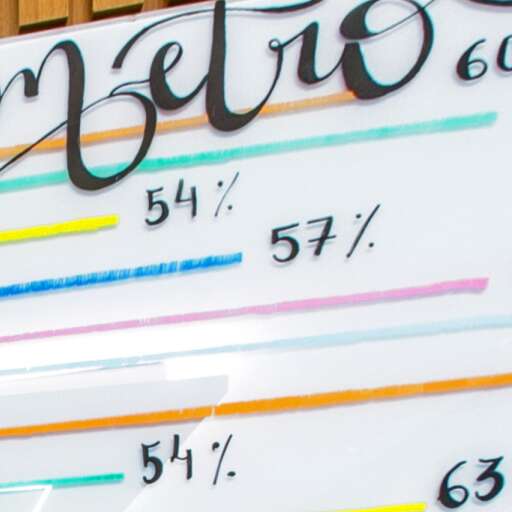 Metro
60
54%
57%
54%
63